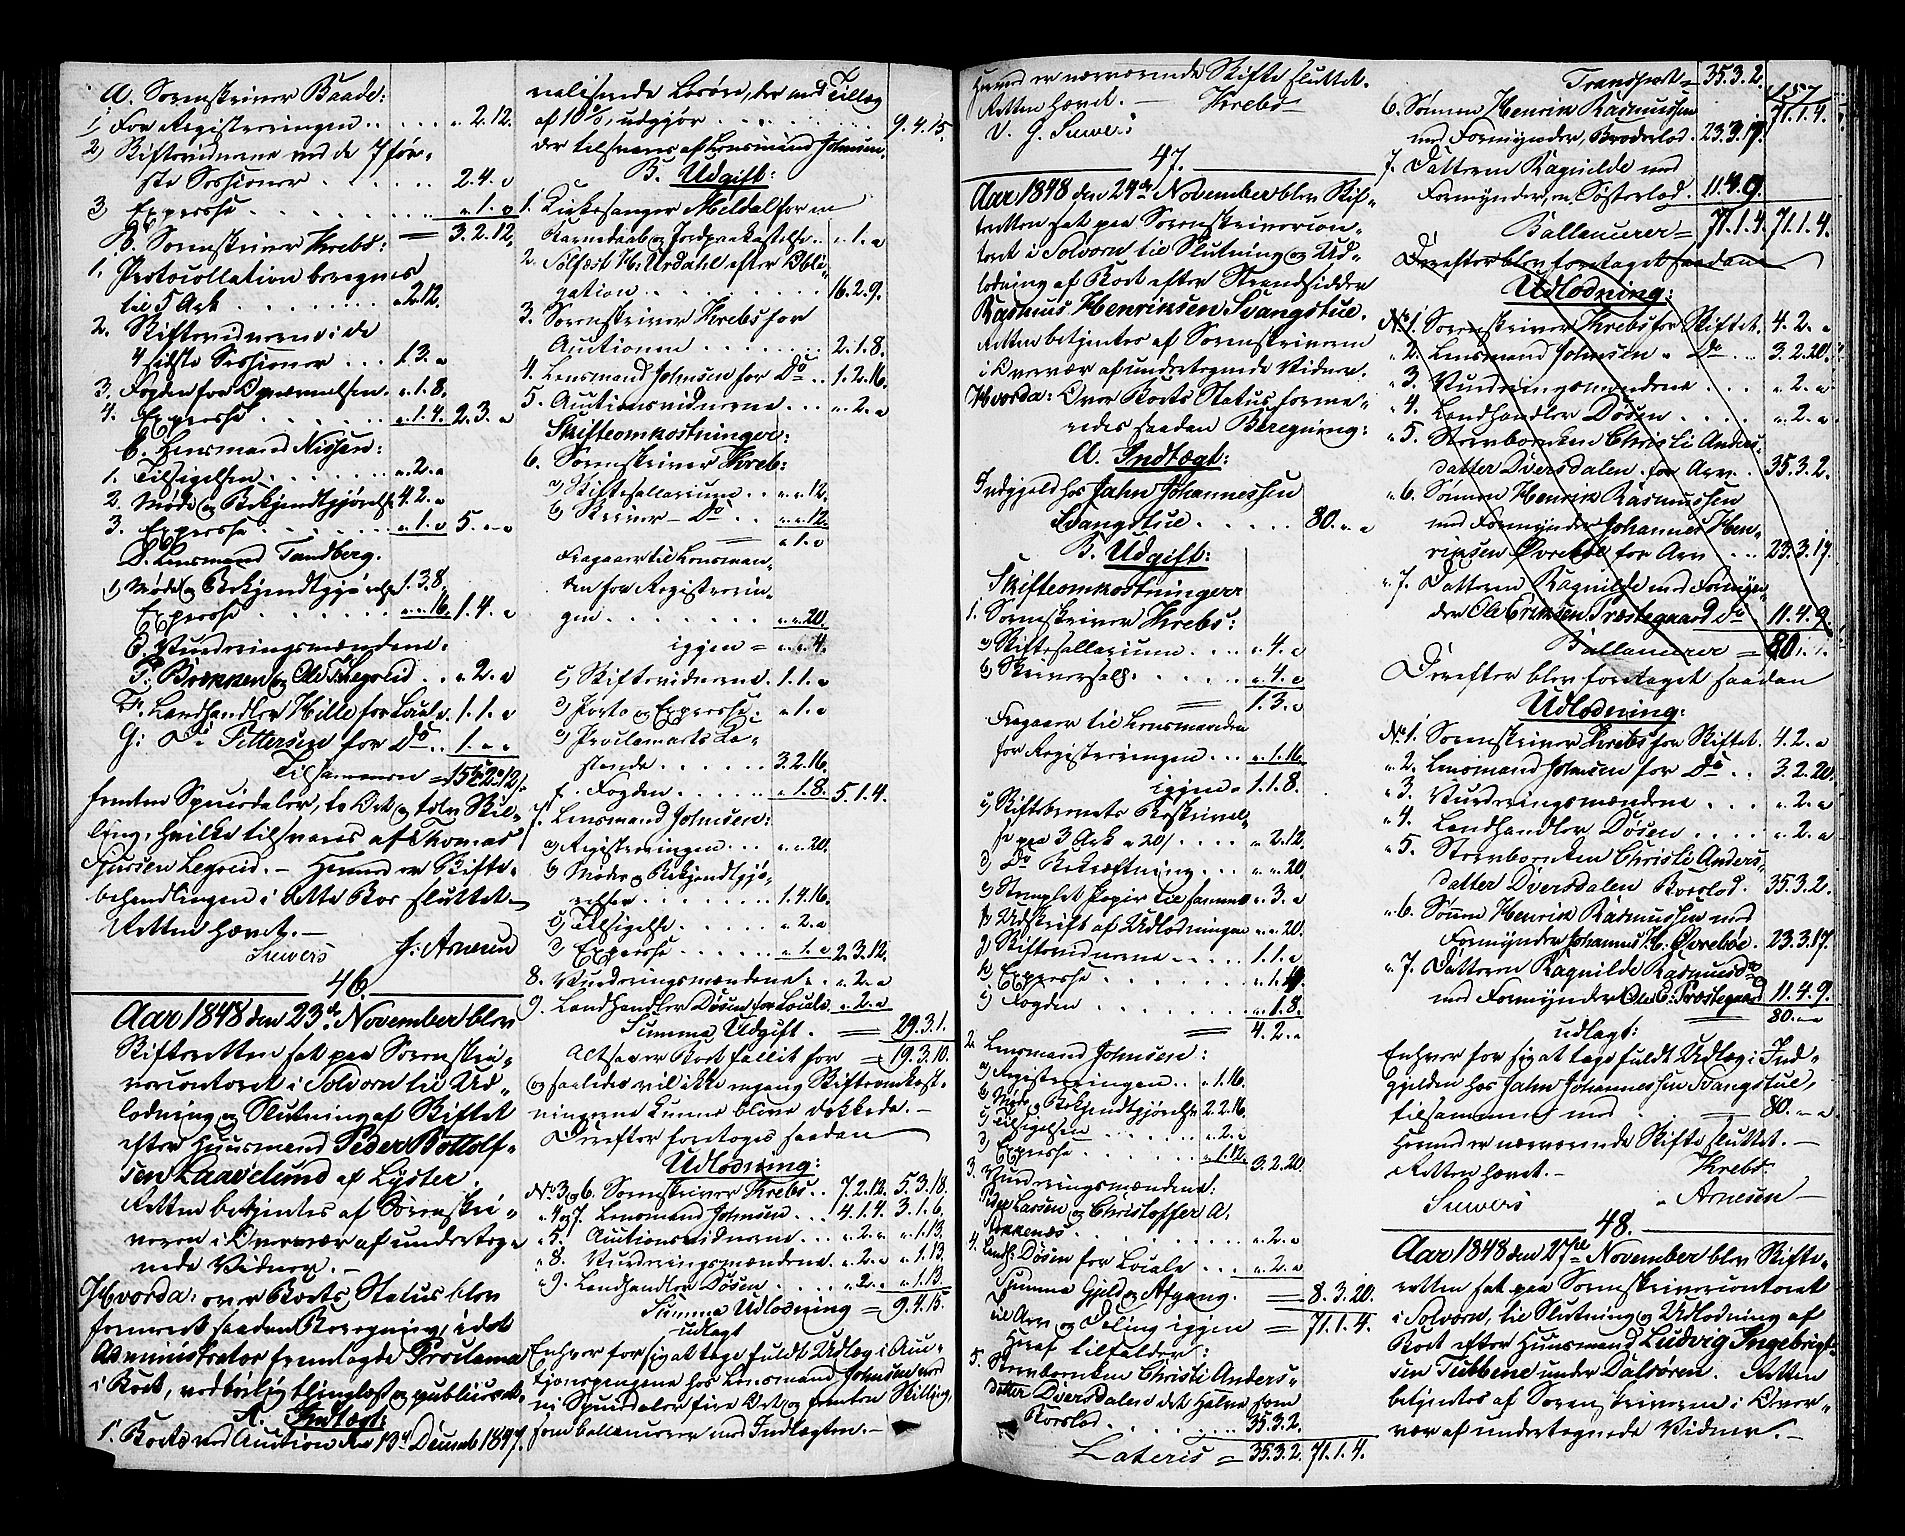 A. Sorenskriver Baade:
1, For Registreringen . . . . . „ 2. 12.
2) Skiftevidnerne ved de 7 før-
ste Sessioner . . . . . 2. 4. „
3) Expresse . . . . . „ 1. „
3. 2. 12.
B. Sorenskriver Krebs:
1. Protocollation beregnes
til 5 Ark . . . . . „ 2. 12.
2. Skiftevidnerne i de
4 sidste Sessioner . . . 1. 3. „
3. Fogden for Opnævnelsen. „ 1. 8.
4. Expresse . . . . „ 1. 4. 2. 3. „
C. Lensmand Nissen:
1. Tilsigelsen . . . . . „ 2. „
2. Møde og Bekjendtgjørelse 4. 2. „
3. Expresse . . . . . „ 1. „ 5. „ „
D. Lensmand Tandberg.
1) Møde og Bekjendtgjørelse 1. 3. 8.
Expresse . . . . . „ „ 16. 1. 4. „
E. Vurderingsmændene:
P. Brekken og Ole Skegvid . . „ 2. „
F. Landhandler Hille for Locale. 1. 1. „
G: Do Pettersen for Do . . 1. „ „
Tilsammen = 15. 2. 12.
femten Speciesdaler, to Ort og tolv Skil-
ling, hvilke tilsvares af Thomas
Sjursen Legreid. – Hermed er Skifte-
behandlingen i dette Boe sluttet. –
Retten hævet. –
Siewers J. Arnesen
46.
Aar 1848 den 23de November blev
Skifteretten sat paa Sorenskri-
vercontoret i Solvorn til Ud-
lodning og Slutning af Skiftet
efter Huusmand Peder Bottolf-
sen Laavelund af Lyster.
Retten betjentes af Sorenskri-
veren i Overvær af underteg-
nede Vidner. –
Hvorda: over Boets Status blev
formeret saadan Beregning, idet
Administrator fremlagde Proclama
i Boet, vedbørlig thinglæst og publiceret.
A. Indtægt:
1. Boets ved Auction den 13de Decemb. 1847
realiserede Løsøre, der med Tillæg
af 10%, udgjør . . . . . 9. 4. 15.
der tilsvares af Lensmand Johnsen.
B. Udgift:
1. Kirkesanger Meldal for en
Barnedaab og Jordpaakastelse . . „ 1. „
2. Sølfæst H. Urdahl efter Obli-
gation . . . . . 16. 2. 9.
3. Sorenskriver Krebs for
Auctionen . . . . . 2. 1. 8.
4. Lensmand Johnsen for Do . . 1. 2. 16.
5. Auctionsvidnerne . . . „ 2. „
Skifteomkostninger:
6. Sorenskriver Kreb:
a) Skiftesallarium . . „ „ 12.
b) Skriver – Do . . „ „ 12.
= „ 1. „
Fragaaer til Lensman-
den for Registrerin-
gen . . . . . „ „ 20.
igjen = „ „ 4.
c) Skiftevidnerne 1. 1. „
d) Porto og Expresse. „ 1. „
e) Proclamaets Be-
stende . . . . . 3. 2. 16.
f. Fogden . . . . . „ 1. 8. 5. 1. 4.
7. Lensmand Johnsen:
a) Registreringen . . . „ „ 20.
b) Møde og Bekjendtgjø-
relser . . . . . 1. 4. 16.
c) Tilsigelse . . . . . „ 2. „
d) Expresse . . . . . „ 1. „ 2. 3. 12.
8. Vurderingsmændene . . „ 2. „
9. Landhandler Døsen for Locale „ 2. „
Summa Udgift . = 29. 3. 1.
Altsaa er Boet fallit for = 19. 3. 10.
og saaledes vil ikke engang Skifteomkost-
ningerne kunne blive dekkede. –
Derefter foretoges saadan
Udlodning:
No 3 og 6. Sorenskriver Krebs . . 7. 2. 12. 5. 3. 18.
„ 4 og 7. Lensmand Johnsen . . . 4. 1. 4. 3. 1. 6.
„ 5. Auctionsvidnerne . . . „ 2. „ „ 1. 13.
„ 8. Vurderingsmændene „ 2. „ „ 1. 13.
„ 9. Landhandler Døsen . . . „ 2. „ „ 1. 13.
Summa Udlodning = 9. 4. 15.
udlagt
Enhver for sig at tage fuldt Udlæg i Auc-
tionspengene hos Lensmand Johnsen med
ni Speciedaler fire Ort og femten Skilling,
som ballancerer med Indtægten. –
Hermed er nærværende Skifte sluttet.
Retten hævet. – Krebs
V. G. Siewers
47.
Aar 1848 den 24de November blev Skif-
teretten sat paa Sorenskrivercon-
toret i Solvorn til Slutning og Ud-
lodning af Boet efter Strandsidder
Rasmus Henriksen Svangstue.
Retten betjentes af Sorenskriveren
i Overvær af undertegnede Vidner.
Hvorda: Over Boets Status forme-
redes saadan Beregning:
A. Indtægt:
Indgjeld hos Jahn Johannessen
Svangstue . . . . . 80. „ „
B. Udgift:
Skifteomkostninger
1. Sorenskriver Krebs:
a) Skiftesallarium . . . „ 4. „
b) Skriversall. . . . . „ 4. „
= 1. 3. „
Fragaaer til Lensmanden
for Registreringen . . . „ 1. 16.
igjen = 1. 1. 8.
c) Skiftebrevets Beskrivel-
se paa 3 Ark a 20/ . . . . „ 2. 12.
d) Do Bekræftning . . . „ „ 20.
e) Stemplet Papir til samme „ 3. „
f) Udskrift af Udlodningen „ „ 20.
g) Skiftevidnerne . . . . . 1. 1. „
h) Expresse . . . . „ 1. 4.
i) Fogden . . . . . „ 1. 8.
= 4. 2. „
2. Lensmand Johnsen:
a) Registreringen . . „ 1. 16.
b) Møde og Bekjendtgjørelse 2. 2. 16.
c) Tilsigelsen . . . . . „ 2. „
d) Expresse . . . . . „ 1. 12.
3. 2. 20.
3. Vurderingsmændene:
Peder Larsen og Christoffer A.
. . . . . „ 2. „
4. Landh. Døsen for Locale . . . „ 2. „
Summa Gjeld og Afgang. = 8. 3. 20.
til Arv og Deling igjen = 71. 1. 4.
Heraf tilfalder:
5. Stervboenken Christi Anders-
datter Dversdalen det halve som
Boeslod . . . . . 35. 3. 2.
Lateris = 35. 3. 2. 71. 1. 4.
157
Transport = 35. 3. 2. 71. 1. 4.
6. Sønnen Henrik Rasmussen
med Formynder, Broderlod . 23. 3. 17.
7. Datteren Ragnilde med
Formynder, en Søsterlod . 11. 4. 9.
Ballancerer = 71. 1. 4. 71. 1. 4.
Derefter blev foretaget saadan
Udlodning:
No 1. Sorenskriver Krebs for Skiftet. 4. 2. „
„ 2. Lensmand Johnsen „ Do . . . 3. 2. 20.
„ 3. Vurderingsmændene . . . „ 2. „
„ 4. Landhandler Døsen . . . . „ 2. „
„ 5. Stervboenken Christi Anders-
datter Dversdalen for Arv . 35. 3. 2.
„ 6. Sønnen Henrik Rasmussen
med Formynder Johannes Hen-
riksen Øvrebøe for Arv . . 23. 3. 17.
„ 7. Datteren Ragnilde med Formyn-
der Ole Eriksen Præstegaard Do . 11. 4. 9.
Ballancerer = 80. „ „
Derefter blev foretaget saadan
Udlodning:
No 1. Sorenskriver Krebs for Skiftet. 4. 2. „
„ 2. Lensmand Johnsen for Do . . 3. 2. 20.
„ 3. Vurderingsmændene . . . „ 2. „
„ 4. Landhandler Døsen . . . . „ 2. „
„ 5. Stervboenken Christi Anders-
datter Dversdalen Boeslod . 35. 3. 2.
„ 6. Sønnen Henrik Rasmussen med
Formynder Johannes H. Øvrebøe . 23. 3. 17.
„ 7. Datteren Ragnilde Rasmusdr
med Formynder Ole E. Præstegaard 11. 4. 9.
= 80. „ „
udlagt:
Enhver for sig at tage fuldt Udlæg i Ind-
gjelden hos Jahn Johannessen Svangstue,
tilsammen med = 80. „ „
Hermed er nærværende Skifte sluttet. –
Retten hævet. – Krebs
Siewers Arnesen –
48.
Aar 1848 den 27de November blev Skifte-
retten sat paa Sorenskrivercontoret
i Solvorn, til Slutning og Udlodning af
Boet efter Huusmand Ludvig Ingebrigt-
sen Tubbene under Dalsøren. Retten
betjentes af Sorenskriveren i Over-
vær af undertegnede Vidner. –